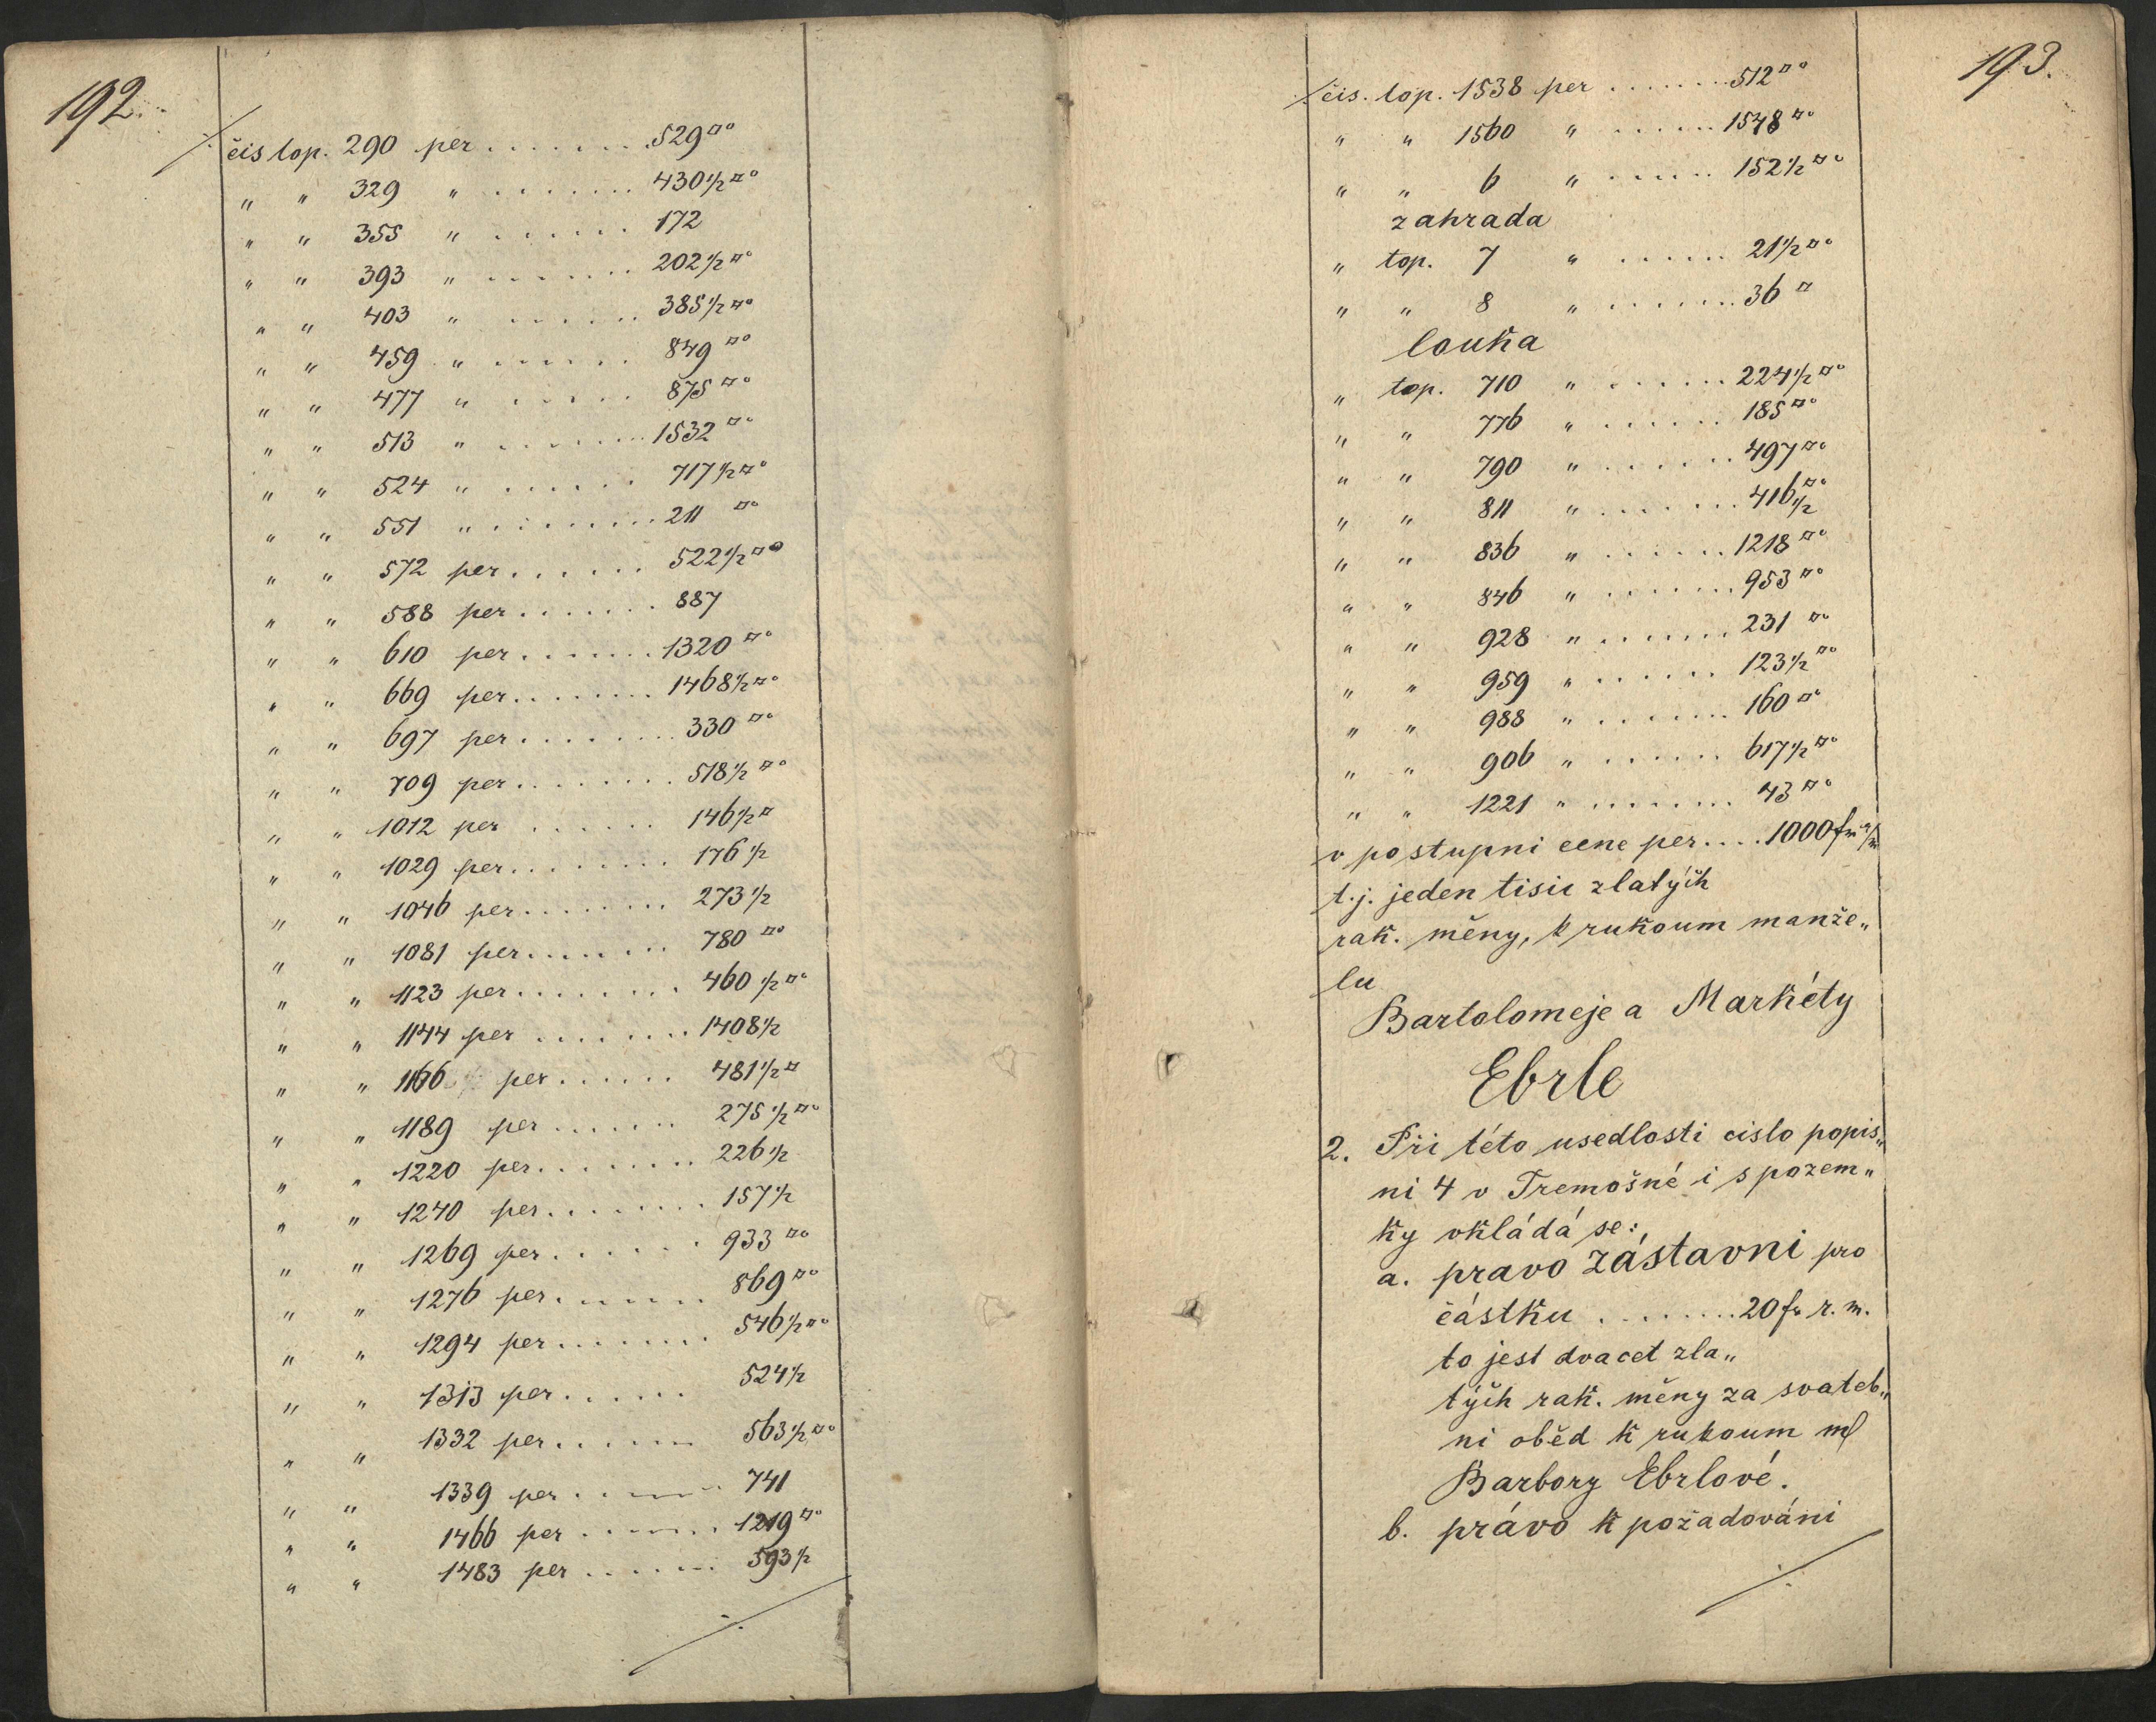 192.
čis top. 290 per ....... 529 □°
" " 329 " ....... 430½ □°
" " 355 " ...... 172
" " 393 " ....... 202½ □°
" " 403 " ...... 385½ □°
" " 459 " ...... 849 □°
" " 477 " ...... 875 □°
" " 513 " ....... 1532 □°
" " 524 " ...... 717½ □°
" " 551 " ......... 211 □°
" " 572 per ...... 522½ □°
" " 588 per ....... 887
" " 610 per ....... 1320 □°
" " 669 per ........ 1468½ □°
" " 697 per ........ 330 □°
" " 709 per ........ 518½ □°
" " 1012 per ...... 146½ □
" " 1029 per ........ 176½
" " 1046 per ........ 273½
" " 1081 per ....... 780 □°
" " 1123 per ........ 460½ □°
" " 1144 per ....... 1408½
" " 1166 per ...... 481½ □
" " 1189 per ....... 275½ □°
" " 1220 per ........ 226½
" " 1240 per ........ 157½
" " 1269 per ...... 933 □°
" " 1276 per ....... 869 □°
" " 1294 per ....... 546½ □°
" " 1313 per ...... 524½
" " 1332 per ...... 563½ □°
" " 1339 per ...... 741
" " 1466 per ...... 1219 □°
" " 1483 per ...... 593½
193.
čis. top. 1538 per ....... 512 □°
" " 1560 " ...... 1548 □°
" " 6 " ...... 152½ □°
zahrada
" top. 7 " ...... 21½ □°
" " 8 " ....... 36 □
louka
" top. 710 " ...... 224½ □°
" " 776 " ...... 185 □°
" " 790 " ....... 497 □°
" " 811 " ....... 416½ □°
" " 836 " ...... 1218 □°
" " 846 " ....... 953 □°
" " 928 " ....... 231 □°
" " 959 " ...... 123½ □°
" " 988 " ....... 160 □°
" " 906 " ...... 617½ □°
" " 1221 " ....... 43 □°
v postupni cene per .... 1000 fr
t.j. jeden tisic zlatých
rak. měny, k rukoum manže„
lu
Bartolomeje a Markéty
Ebrle
2. Při této usedlosti cislo popis„
ni 4 v Tremošné i s pozem„
ky vkládá se:
a. pravo zástavni pro
částku ........ 20 fr r. m.
to jest dvacet zla„
tých rak. měny za svateb„
ni oběd k rukoum ml
Barbory Ebrlové.
b. právo k požadováni